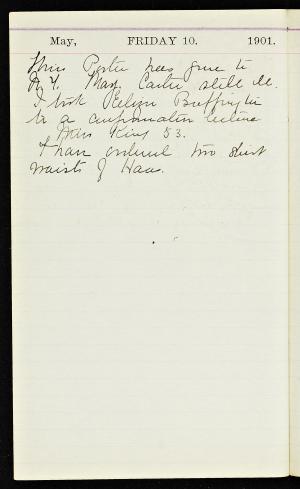 May, FRIDAY 10. 1901.
Miss Porter has gone to
N.Y. Mary Carter still ill.
I took Evelyn Buffington
to a confirmation lecture
Miss King 53.
I have ordered two shirt
waists of Haas.